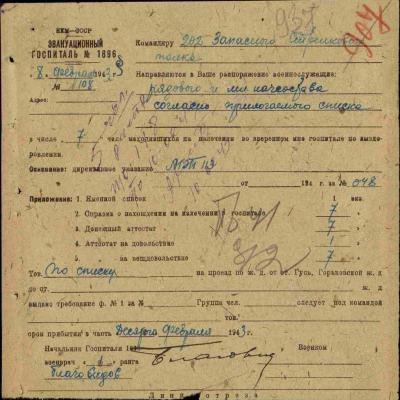 НКМ-СССР
ЭВАКУАЦИОННЫЙ
ГОСПИТАЛЬ № 1896
8 февраля 1943
№ 1108
Адрес:
Командиру 202 Запасного Стрелкового
полка
Направляются в Ваше распоряжение военнослужащие:
рядового и мл начсостава
согласно прилагаемого списка
в числе 7 чел. находившихся на излечении во вверенном мне госпитале по выздо-
ровлении.
Основание: директивное указание МЭП 113
от 194 г за № 048
Приложение: 1. Именной список 1 экз.
2. Справка о нахождении на излечении в госпитале 7
3. Денежный аттестат 7
4. Аттестат на довольствие 1
5. на вещдовольствие 7
Тов. По списку на проезд по ж. д. от ст. Гусь, Горьковской ж. д
до ст.
выдано требование ф. № 1 за № Группа чел. следует под командой
тов.
срок прибытия в часть Десятого февраля 1943 г.
Начальник Госпиталя Военком
военврач ранга
Благовидов
Линия отреза